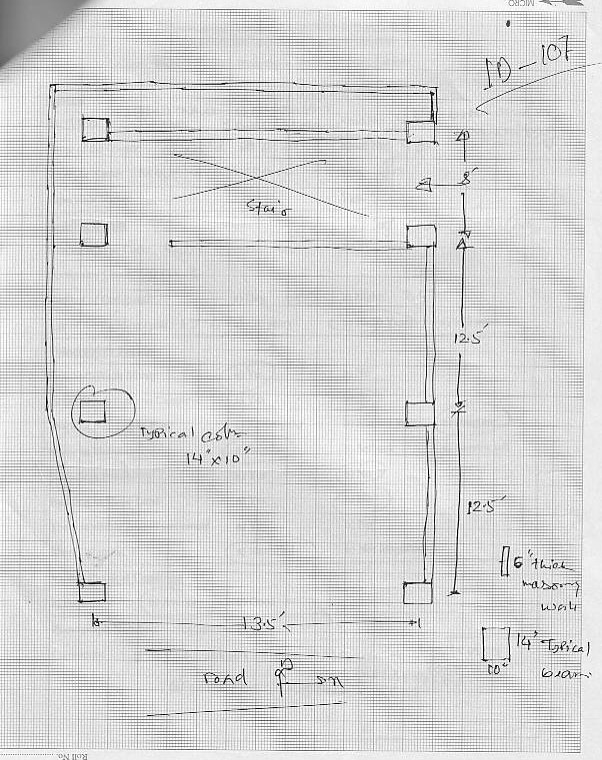 MICRO
ID-107
8'
Stair
12.5'
Typical Colm
14"x10"
12.5'
6" thick
masonry
wall
13.5'
14" Typical
10" beam
road
Roll No.